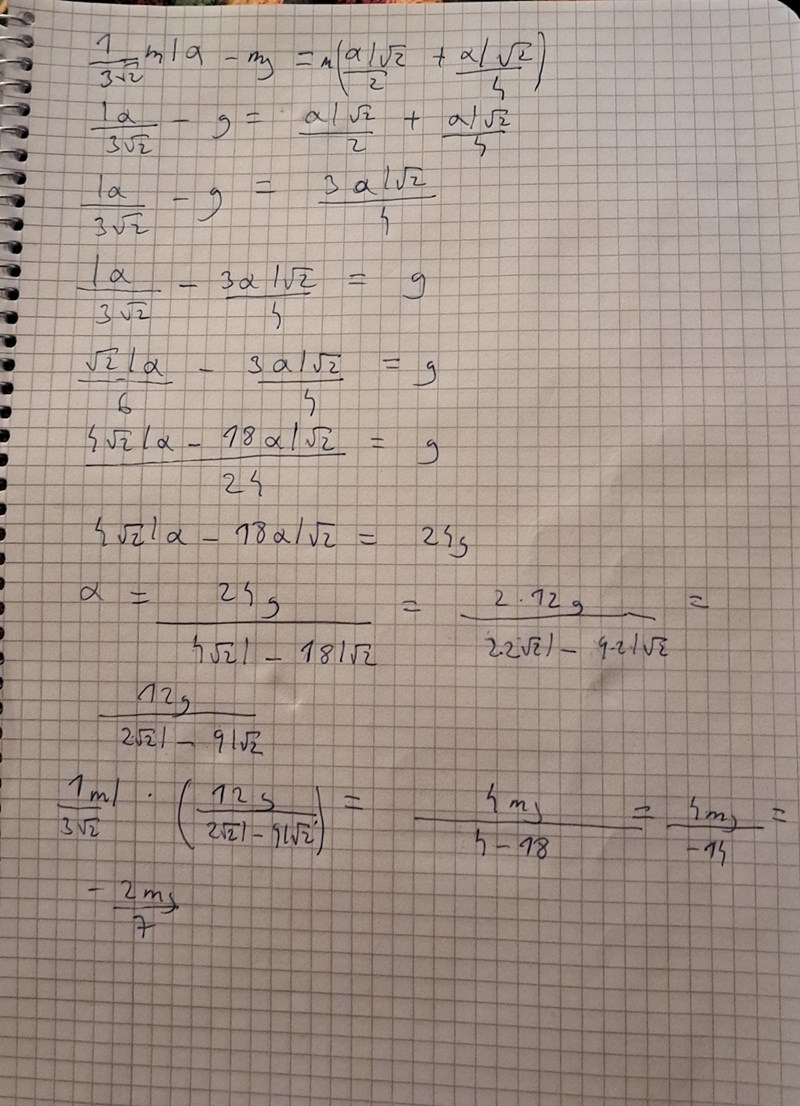 1/(3√2) mlα − mg = m(αl√2/2 + αl√2/4)
lα/(3√2) − g = αl√2/2 + αl√2/4
lα/(3√2) − g = 3αl√2/4
lα/(3√2) − 3αl√2/4 = g
√2lα/6 − 3αl√2/4 = g
(4√2lα − 18αl√2)/24 = g
4√2lα − 18αl√2 = 24g
α = 24g/(4√2l − 18l√2) = 2·12g/(2·2√2l − 9·2l√2) =
12g/(2√2l − 9l√2)
1ml/(3√2) · (12g/(2√2l − 9l√2)) = 4mg/(4−18) = 4mg/−14 =
−2mg/7